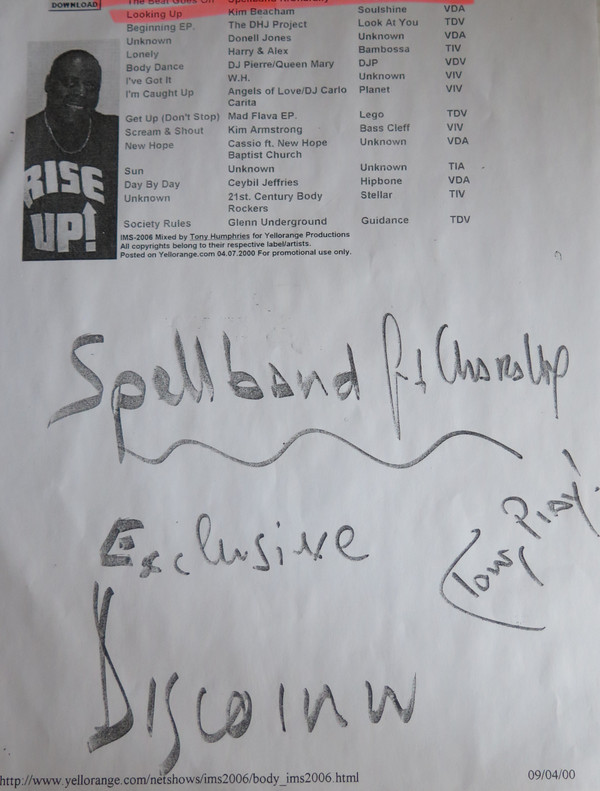 DOWNLOAD
The Beat Goes On
Looking Up Kim Beacham Soulshine VDA
Beginning EP. The DHJ Project Look At You TDV
Unknown Donell Jones Unknown VDA
Lonely Harry & Alex Bambossa TIV
Body Dance DJ Pierre/Queen Mary DJP VDV
I've Got It W.H. Unknown VIV
I'm Caught Up Angels of Love/DJ Carlo Planet VIV
Carita
Get Up (Don't Stop) Mad Flava EP. Lego TDV
Scream & Shout Kim Armstrong Bass Cleff VIV
New Hope Cassio ft. New Hope Unknown VDA
Baptist Church
Sun Unknown Unknown TIA
Day By Day Ceybil Jeffries Hipbone VDA
Unknown 21st. Century Body Stellar TIV
Rockers
Society Rules Glenn Underground Guidance TDV
RISE
UP!
IMS-2006 Mixed by Tony Humphries for Yellorange Productions
All copyrights belong to their respective label/artists.
Posted on Yellorange.com 04.07.2000 For promotional use only.
Spellband ft
Exclusive
Tony Play!
Discoinw
http://www.yellorange.com/netshows/ims2006/body_ims2006.html 09/04/00